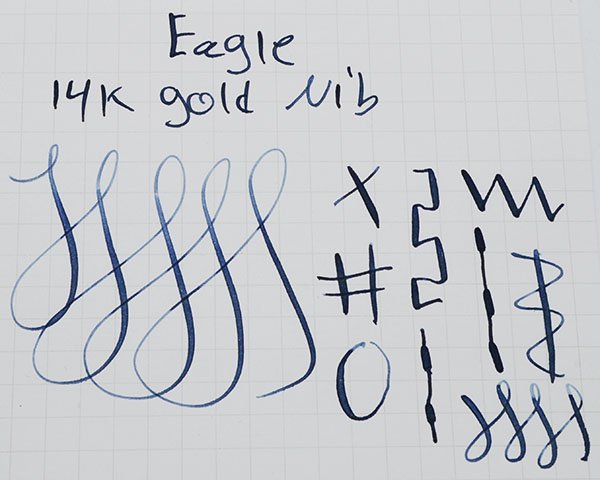 Eagle
14K gold Nib